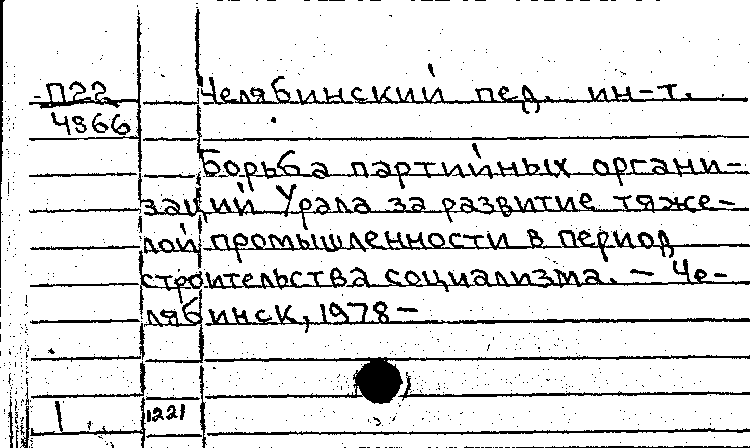 П22 Челябинский пед. ин-т.
4866
Борьба партийных органи-
заций Урала за развитие тяже-
лой промышленности в период
строительства социализма. – Че-
лябинск, 1978 –
1 1221